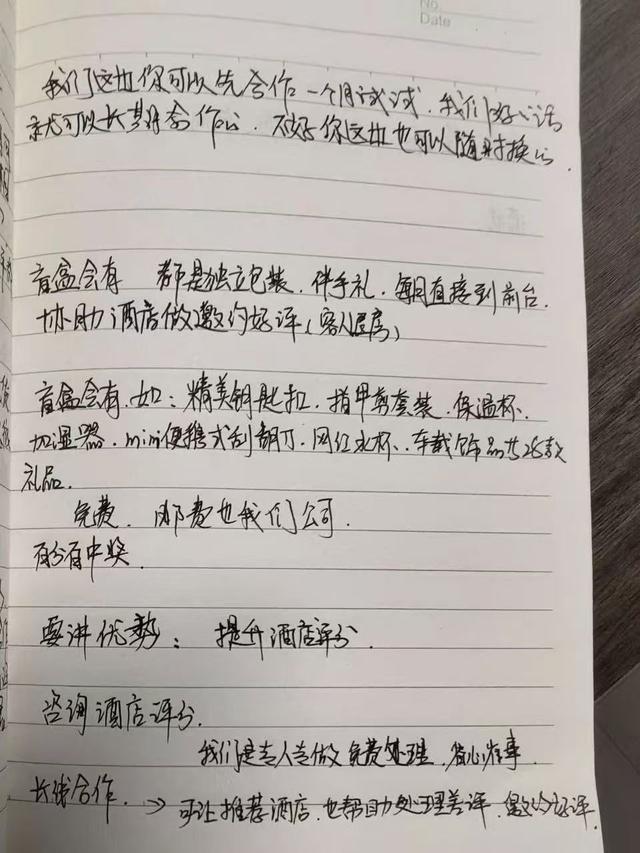 No.
Date
我们这边你可以先合作一个月试试.我们好的话
就可以长期合作的.不好你这边也可以随时换的.
盲盒会有 都是独立包装.伴手礼.每月直接到前台.
协助酒店做邀约好评(客人居房)
盲盒会有.如:精美钥匙扣.指甲剪套装.保温杯.
加湿器.mini便携式刮胡刀.网红水杯.车载饰品共28款
礼品.
免费.邮费也我们公司.
百分百中奖.
要讲优势: 提升酒店评分.
咨询酒店评分.
我们是专人专做免费处理.省心省事
长线合作. → 可让推荐酒店.也帮助处理差评.邀约好评.